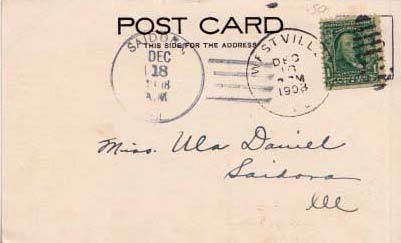 POST CARD
THIS SIDE FOR THE ADDRESS
SAIDORA
DEC
18
1908
A.M.
WESTVILL
DEC
1908
Miss. Ula Daniel
Saidora
Ill